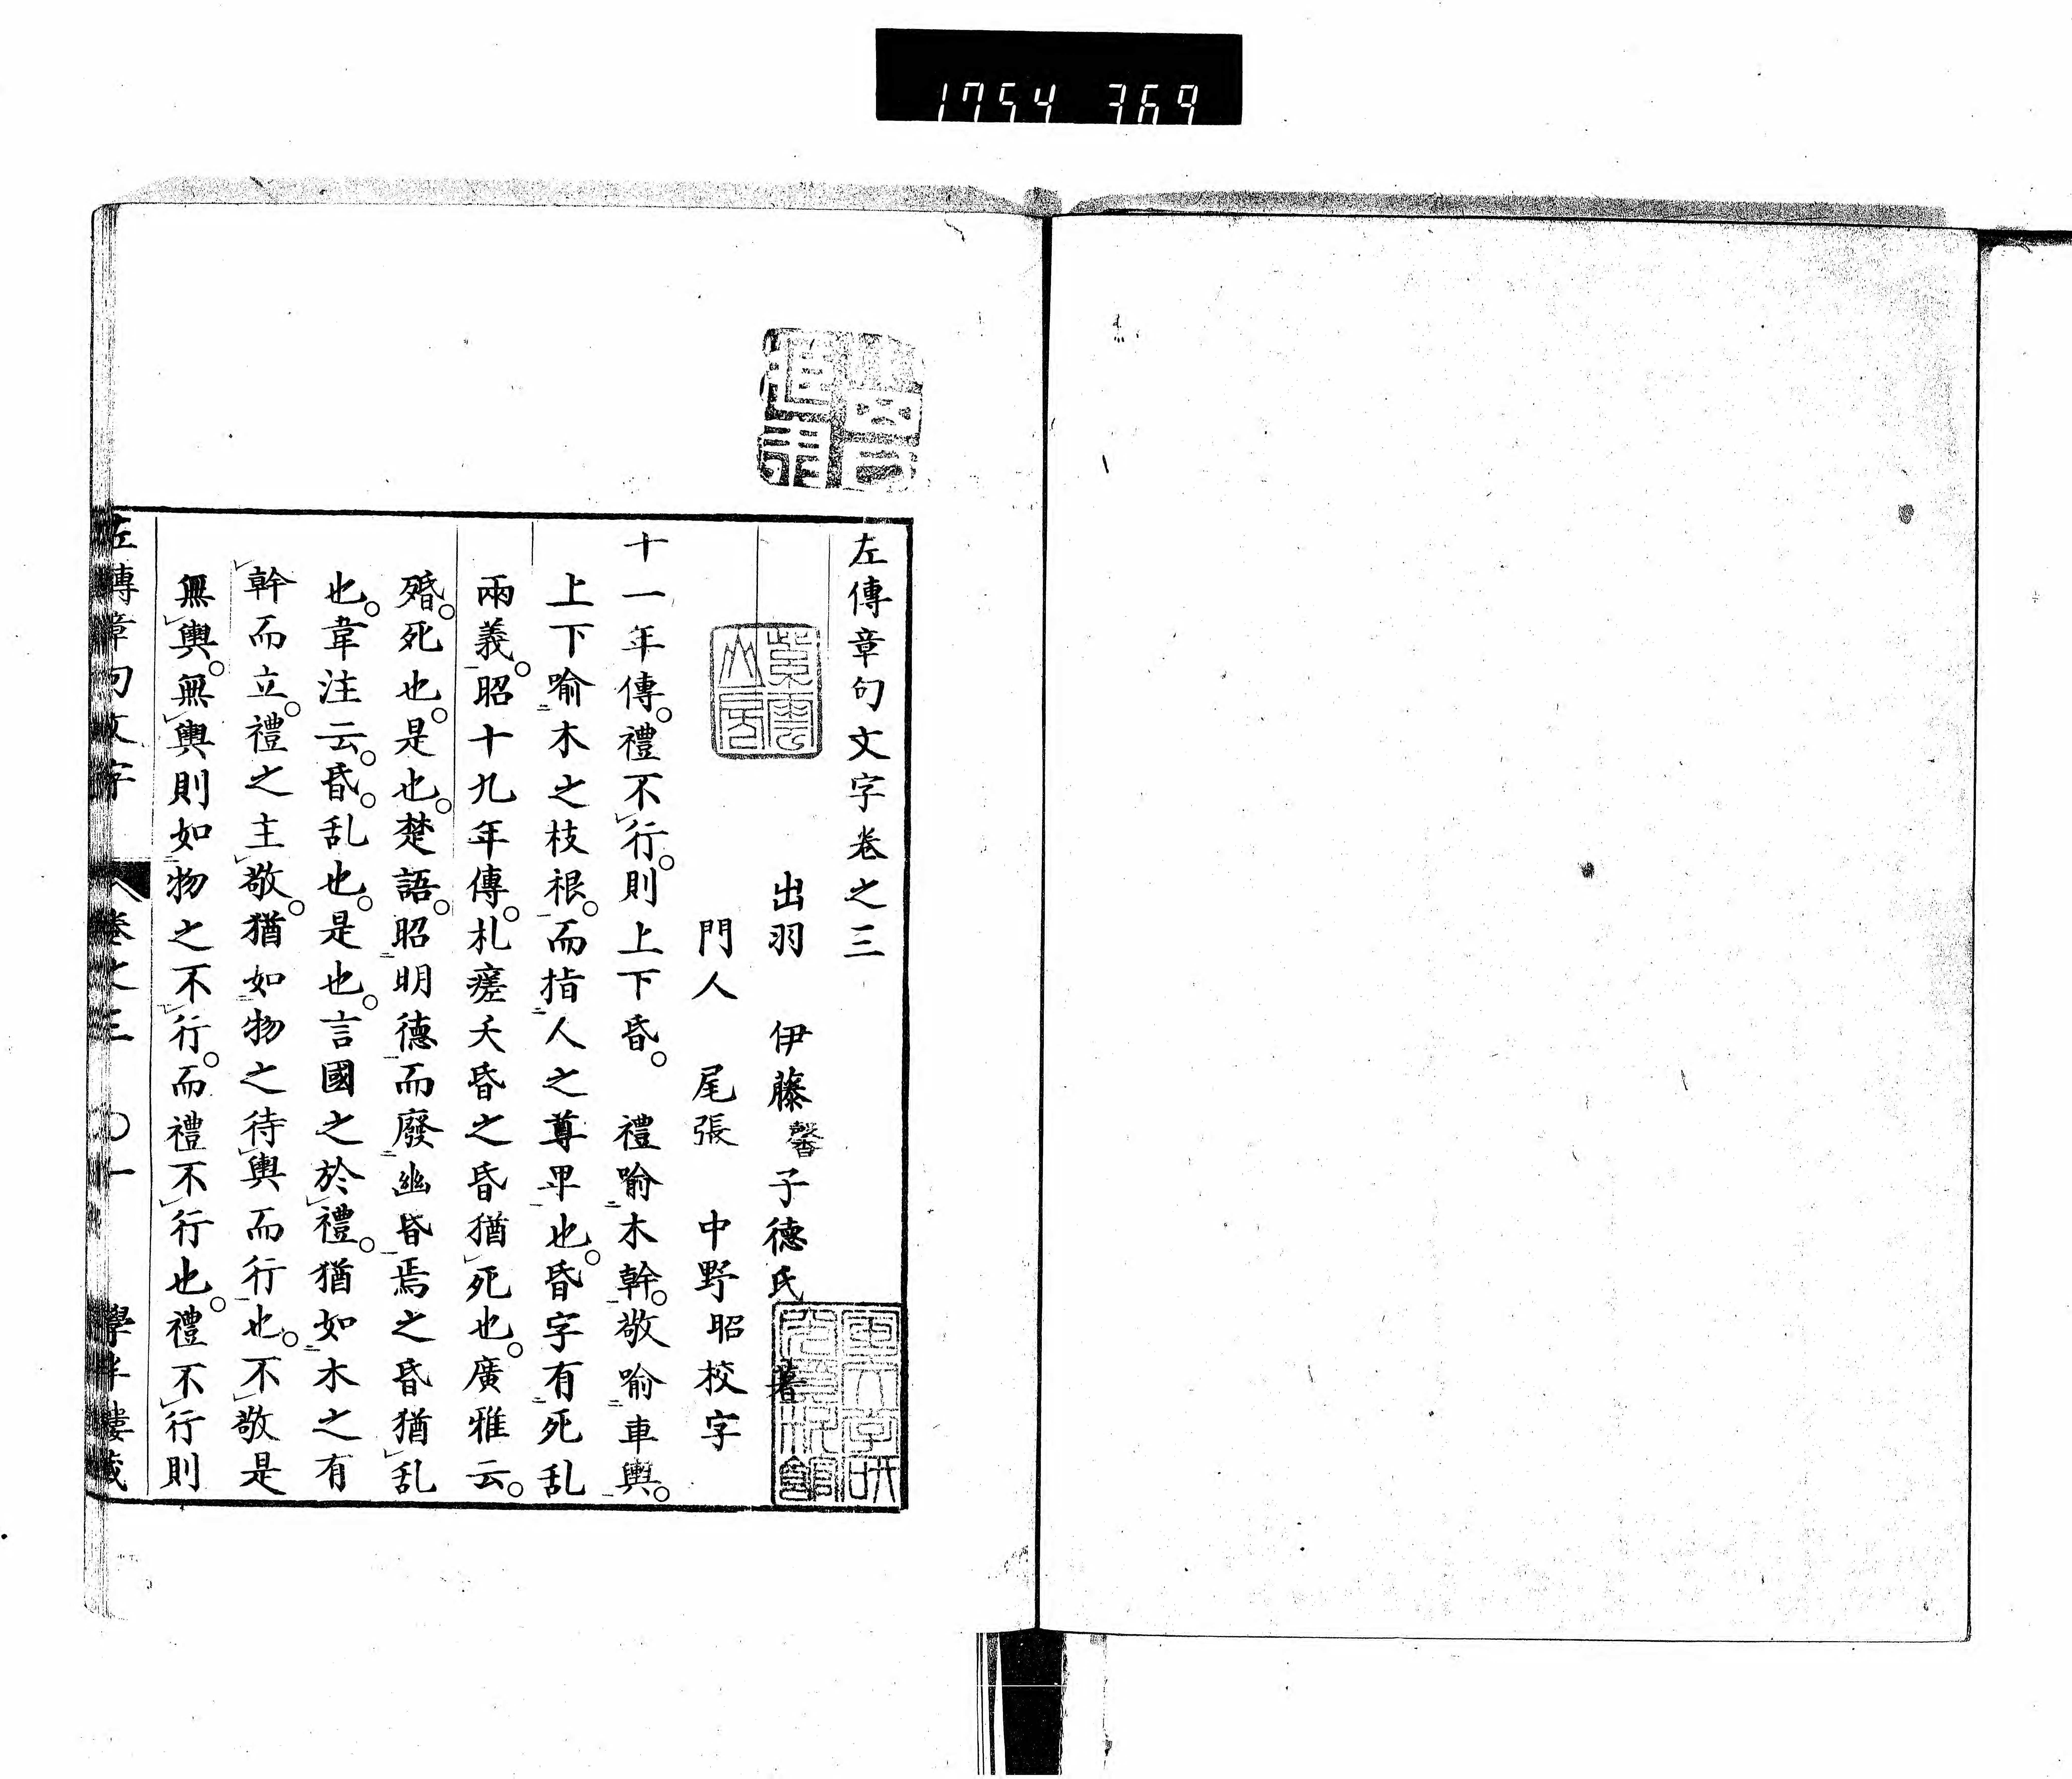 1754 369
左傳章句文字卷之三
出羽 伊藤馨子德氏 著
門人 尾張 中野昭校字
十一年傳。禮不行。則上下昏。 禮喻木幹。敬喻車輿。
上下喻木之枝根。而指人之尊卑也。昏字有死乱
兩義。昭十九年傳。札瘥夭昏之昏猶死也。廣雅云。
殙。死也。是也。楚語。昭明德而廢幽昏焉之昏猶乱
也。韋注云。昏。乱也。是也。言國之於禮。猶如木之有
幹而立。禮之主敬。猶如物之待輿而行也。不敬是
無輿。無輿則如物之不行。而禮不行也。禮不行則
左傳章句文字 卷之三 〇一 學半樓藏